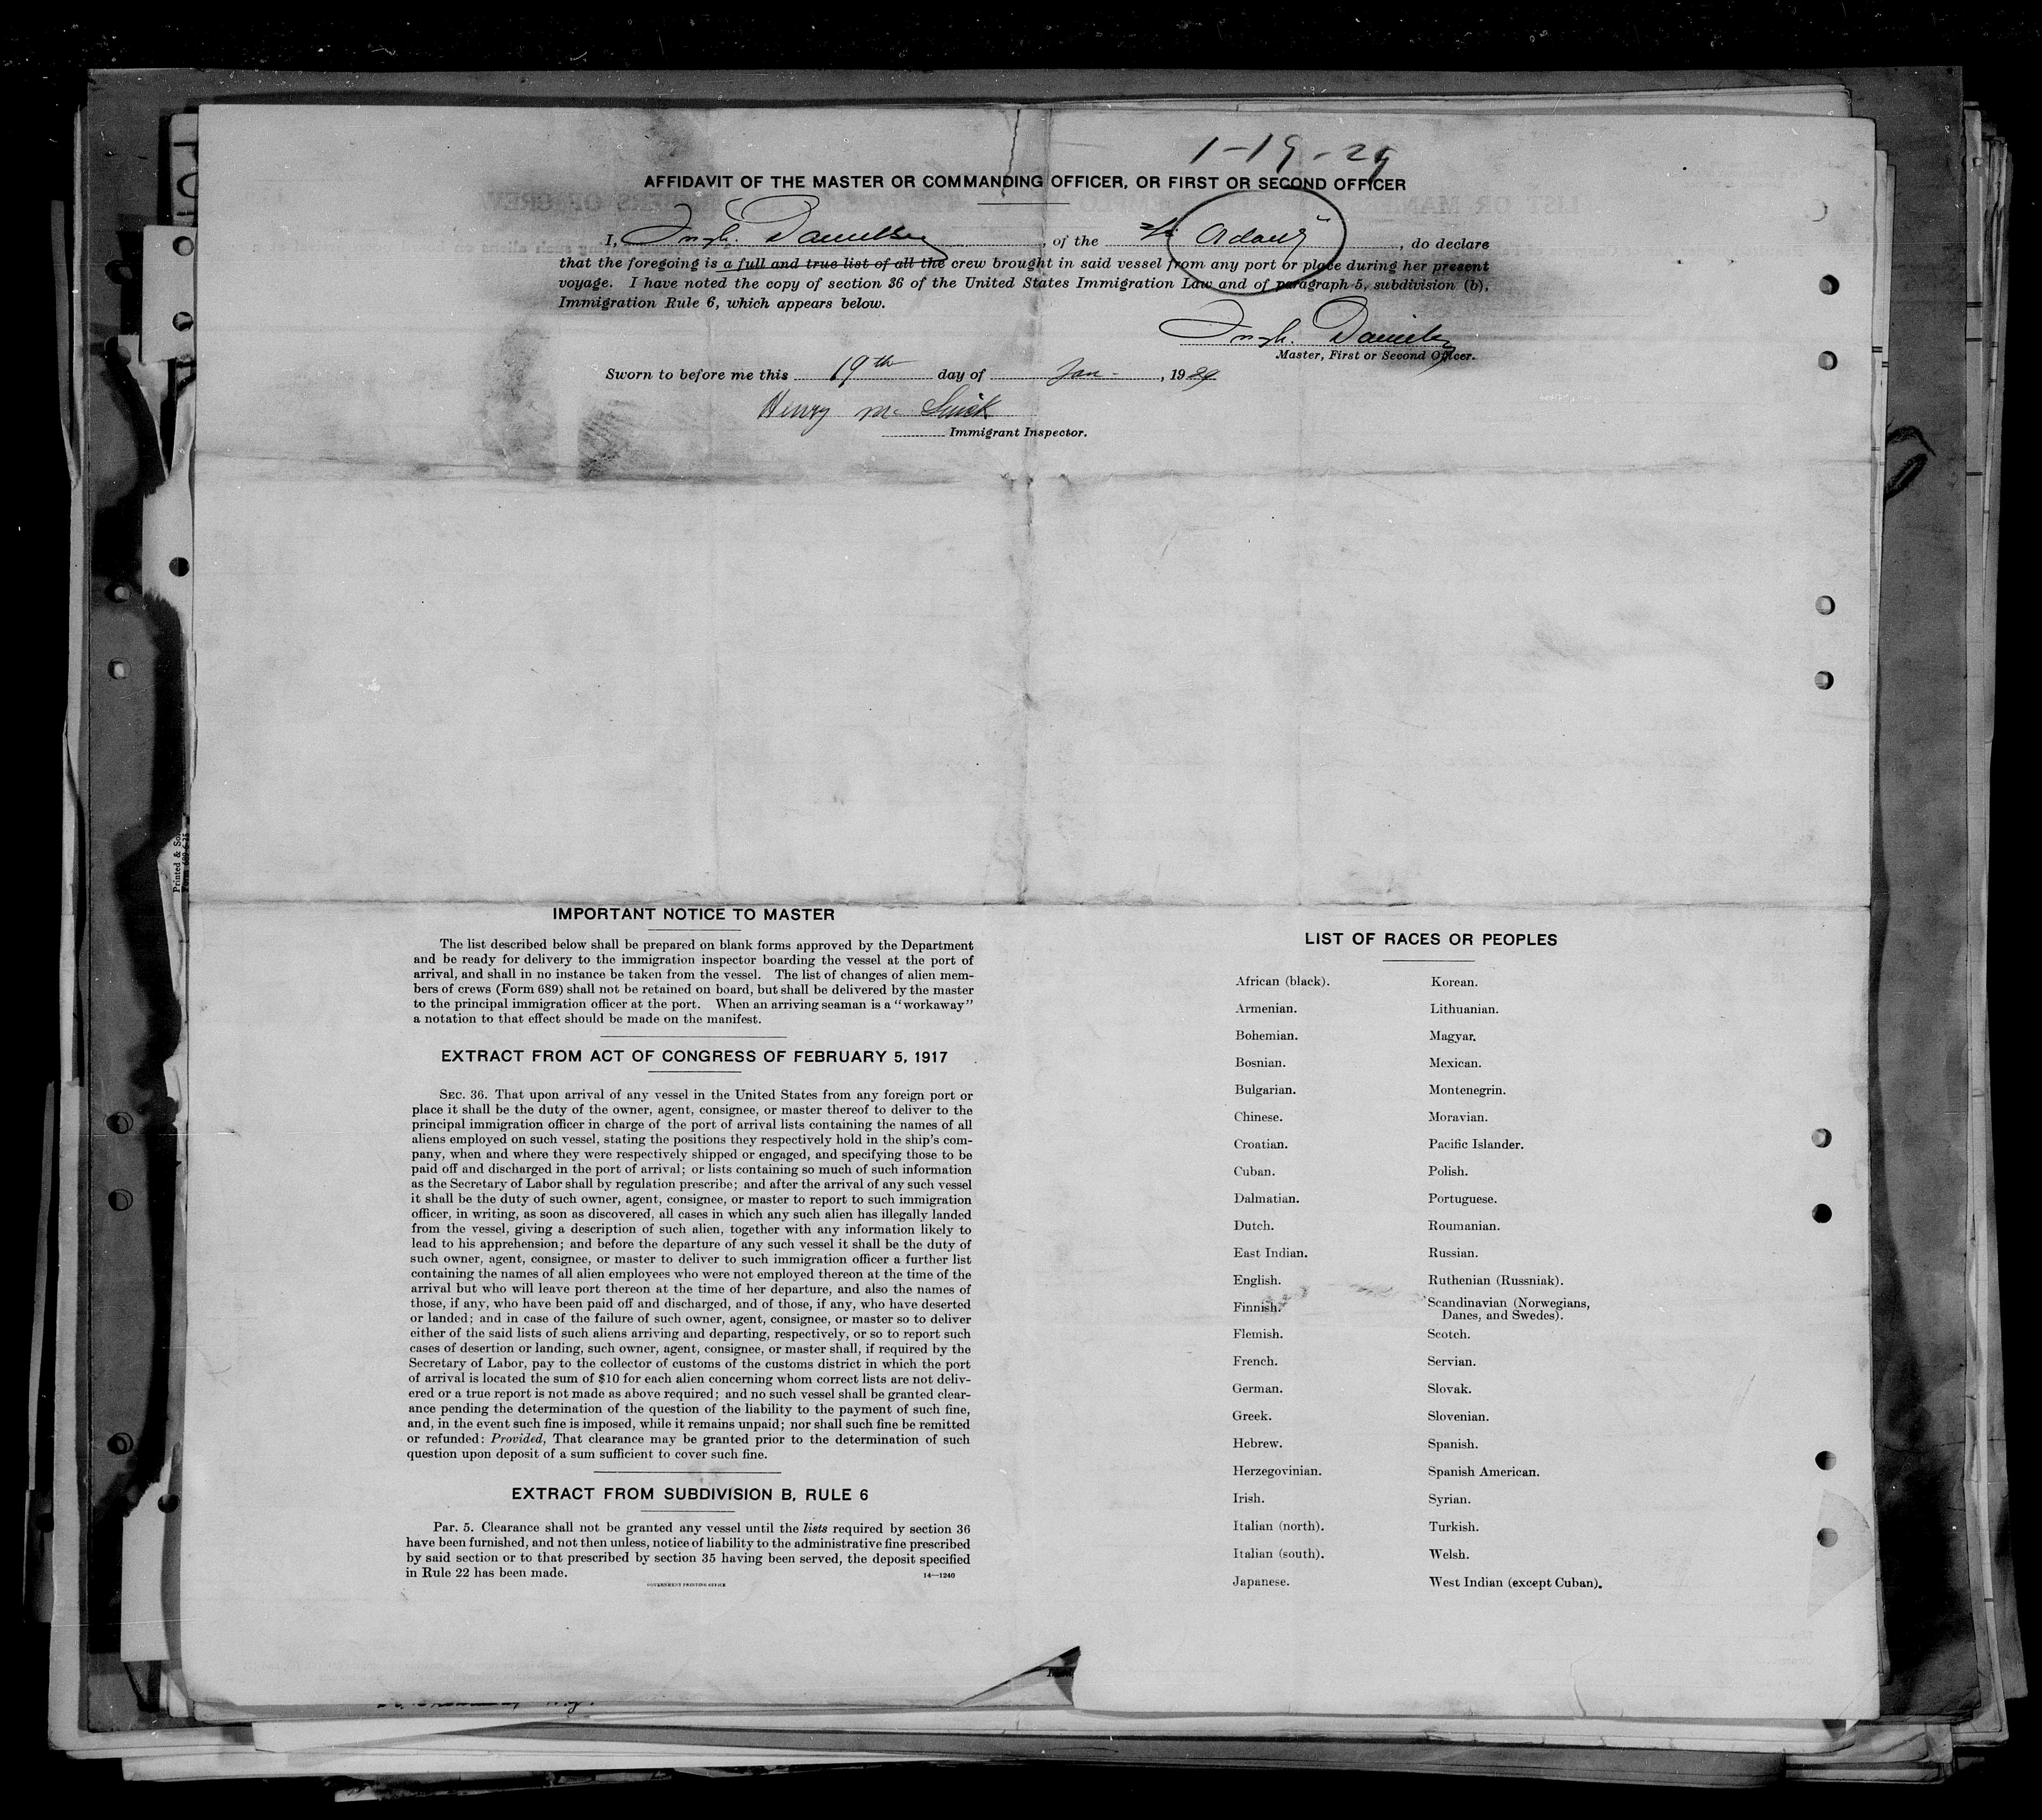 1-19-29
AFFIDAVIT OF THE MASTER OR COMMANDING OFFICER, OR FIRST OR SECOND OFFICER
I, Danielsen, of the , do declare
that the foregoing is a full and true list of all the crew brought in said vessel from any port or place during her present
voyage. I have noted the copy of section 36 of the United States Immigration Law and of paragraph 5, subdivision (b),
Immigration Rule 6, which appears below.
Master, First or Second Officer.
Sworn to before me this 19th day of Jan- , 1929
Henry
Immigrant Inspector.
IMPORTANT NOTICE TO MASTER
The list described below shall be prepared on blank forms approved by the Department
and be ready for delivery to the immigration inspector boarding the vessel at the port of
arrival, and shall in no instance be taken from the vessel. The list of changes of alien mem-
bers of crews (Form 689) shall not be retained on board, but shall be delivered by the master
to the principal immigration officer at the port. When an arriving seaman is a "workaway"
a notation to that effect should be made on the manifest.
EXTRACT FROM ACT OF CONGRESS OF FEBRUARY 5, 1917
SEC. 36. That upon arrival of any vessel in the United States from any foreign port or
place it shall be the duty of the owner, agent, consignee, or master thereof to deliver to the
principal immigration officer in charge of the port of arrival lists containing the names of all
aliens employed on such vessel, stating the positions they respectively hold in the ship's com-
pany, when and where they were respectively shipped or engaged, and specifying those to be
paid off and discharged in the port of arrival; or lists containing so much of such information
as the Secretary of Labor shall by regulation prescribe; and after the arrival of any such vessel
it shall be the duty of such owner, agent, consignee, or master to report to such immigration
officer, in writing, as soon as discovered, all cases in which any such alien has illegally landed
from the vessel, giving a description of such alien, together with any information likely to
lead to his apprehension; and before the departure of any such vessel it shall be the duty of
such owner, agent, consignee, or master to deliver to such immigration officer a further list
containing the names of all alien employees who were not employed thereon at the time of the
arrival but who will leave port thereon at the time of her departure, and also the names of
those, if any, who have been paid off and discharged, and of those, if any, who have deserted
or landed; and in case of the failure of such owner, agent, consignee, or master so to deliver
either of the said lists of such aliens arriving and departing, respectively, or so to report such
cases of desertion or landing, such owner, agent, consignee, or master shall, if required by the
Secretary of Labor, pay to the collector of customs of the customs district in which the port
of arrival is located the sum of $10 for each alien concerning whom correct lists are not deliv-
ered or a true report is not made as above required; and no such vessel shall be granted clear-
ance pending the determination of the question of the liability to the payment of such fine,
and, in the event such fine is imposed, while it remains unpaid; nor shall such fine be remitted
or refunded: Provided, That clearance may be granted prior to the determination of such
question upon deposit of a sum sufficient to cover such fine.
EXTRACT FROM SUBDIVISION B, RULE 6
Par. 5. Clearance shall not be granted any vessel until the lists required by section 36
have been furnished, and not then unless, notice of liability to the administrative fine prescribed
by said section or to that prescribed by section 35 having been served, the deposit specified
in Rule 22 has been made.
14—1240
GOVERNMENT PRINTING OFFICE
LIST OF RACES OR PEOPLES
African (black).
Armenian.
Bohemian.
Bosnian.
Bulgarian.
Chinese.
Croatian.
Cuban.
Dalmatian.
Dutch.
East Indian.
English.
Finnish.
Flemish.
French.
German.
Greek.
Hebrew.
Herzegovinian.
Irish.
Italian (north).
Italian (south).
Japanese.
Korean.
Lithuanian.
Magyar.
Mexican.
Montenegrin.
Moravian.
Pacific Islander.
Polish.
Portuguese.
Roumanian.
Russian.
Ruthenian (Russniak).
Scandinavian (Norwegians,
Danes, and Swedes).
Scotch.
Servian.
Slovak.
Slovenian.
Spanish.
Spanish American.
Syrian.
Turkish.
Welsh.
West Indian (except Cuban).